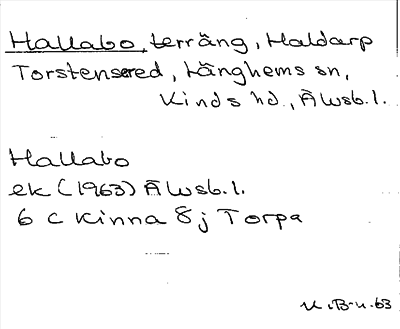 Hallabo, terräng, Haldarp
Torstensered, Länghems sn,
Kinds hd., Älvsb. l.
Hallabo
ek (1963) Älvsb. l.
6 C Kinna 8 j Torpa